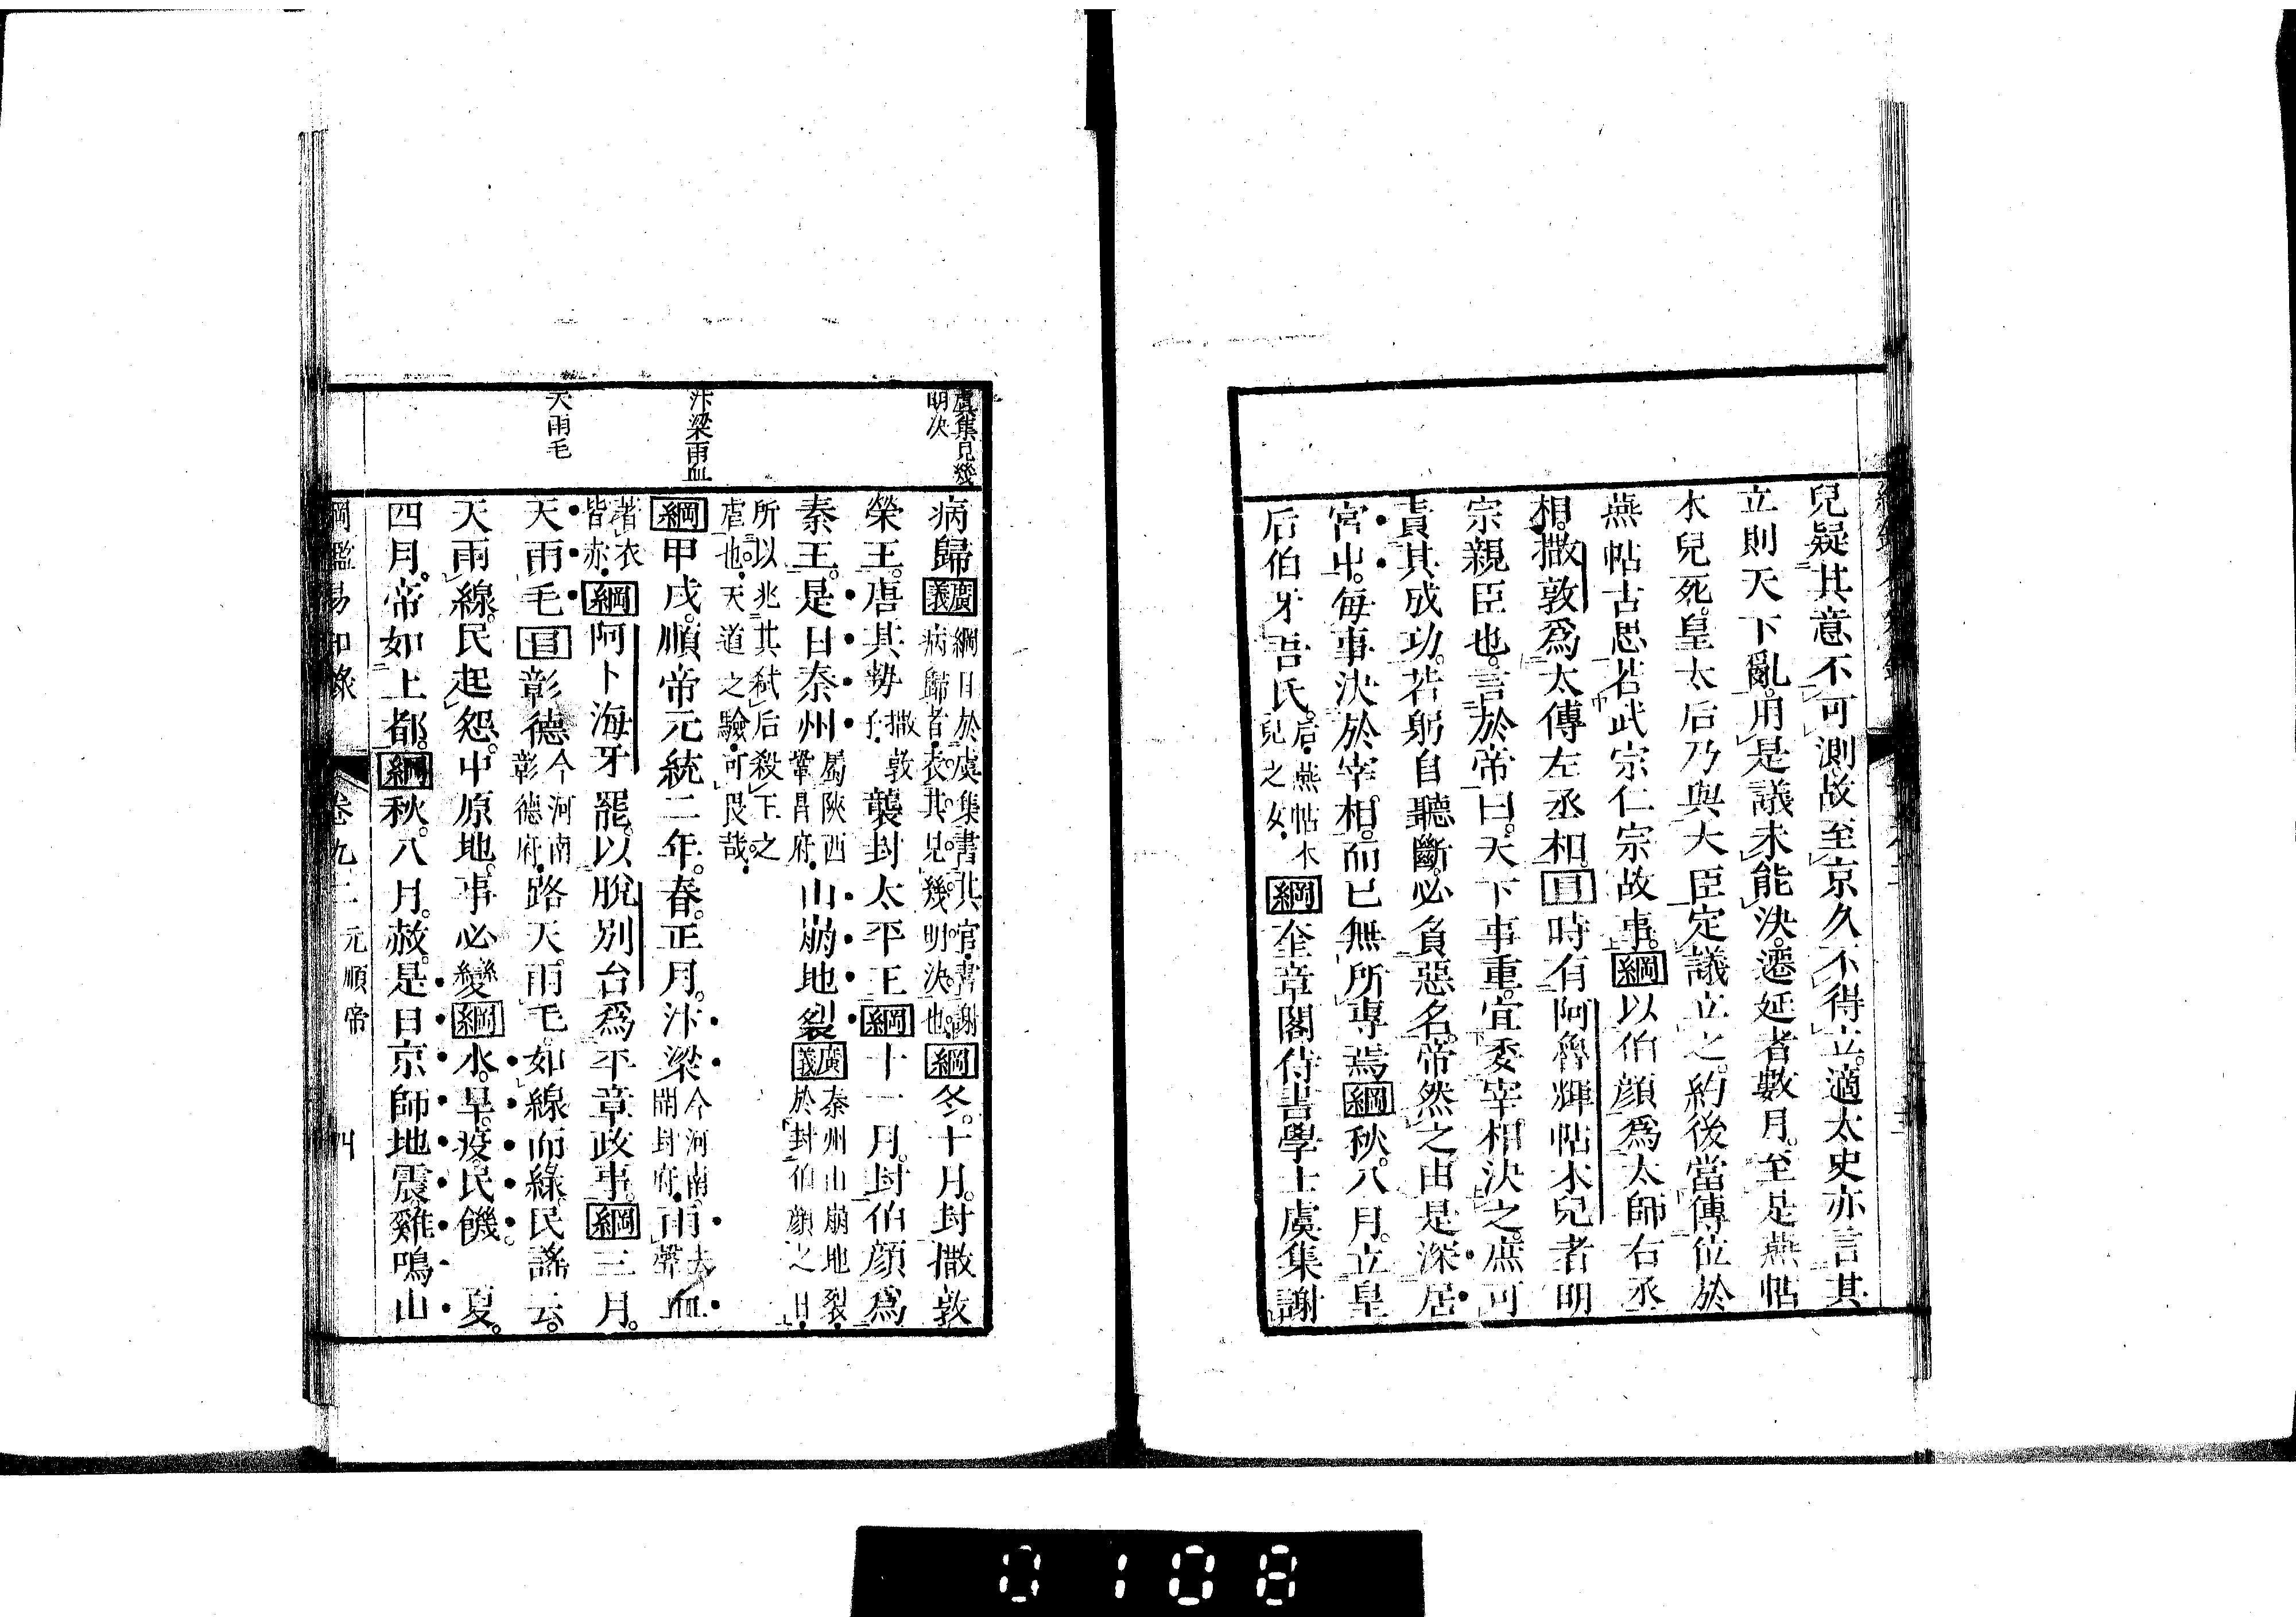 兒疑其意不可測。故至京久不得立。適太史亦言其
立則天下亂。用是議未能決。遷延者數月。至是燕帖
木兒死。皇太后乃與大臣定議立之。約後當傳位於
燕帖古思。若武宗仁宗故事。綱以伯顔爲太師右丞
相。撒敦爲太傅左丞相。目時有阿魯輝帖木兒者明
宗親臣也。言於帝曰。天下事重。宜委宰相決之。庶可
責其成功。若躬自聽斷。必負惡名。帝然之由是深居
宮中。每事決於宰相。而已無所專焉綱秋。八月。立皇
后伯牙吾氏。后燕帖木兒之女綱奎章閣侍書學士虞集謝
虞集見幾
明決
汴梁雨血
天雨毛
病歸廣義綱目於虞集書其官書謝病歸者表其見幾明決也綱冬。十月。封撒敦
榮王。唐其勢撒敦子襲封太平王綱十一月。封伯顔爲
秦王。是日秦州屬陝西鞏昌府山崩地裂廣義秦州山崩地裂於封伯顔之日
所以兆其弑后殺王之虐也天道之驗可畏哉
綱甲戌。順帝元統二年。春。正月。汴梁今河南開封府雨去聲血
著衣皆赤綱阿卜海牙罷。以脫別台爲平章政事。綱三月。
天雨毛目彰德今河南彰德府路天雨毛。如線而綠。民謠云。
天雨線。民起怨。中原地。事必變綱水。旱。疫。民饑。夏。
四月。帝如上都。綱秋。八月。赦。是日京師地震。雞鳴山
綱鑑易知錄 卷九 元順帝 四
0108